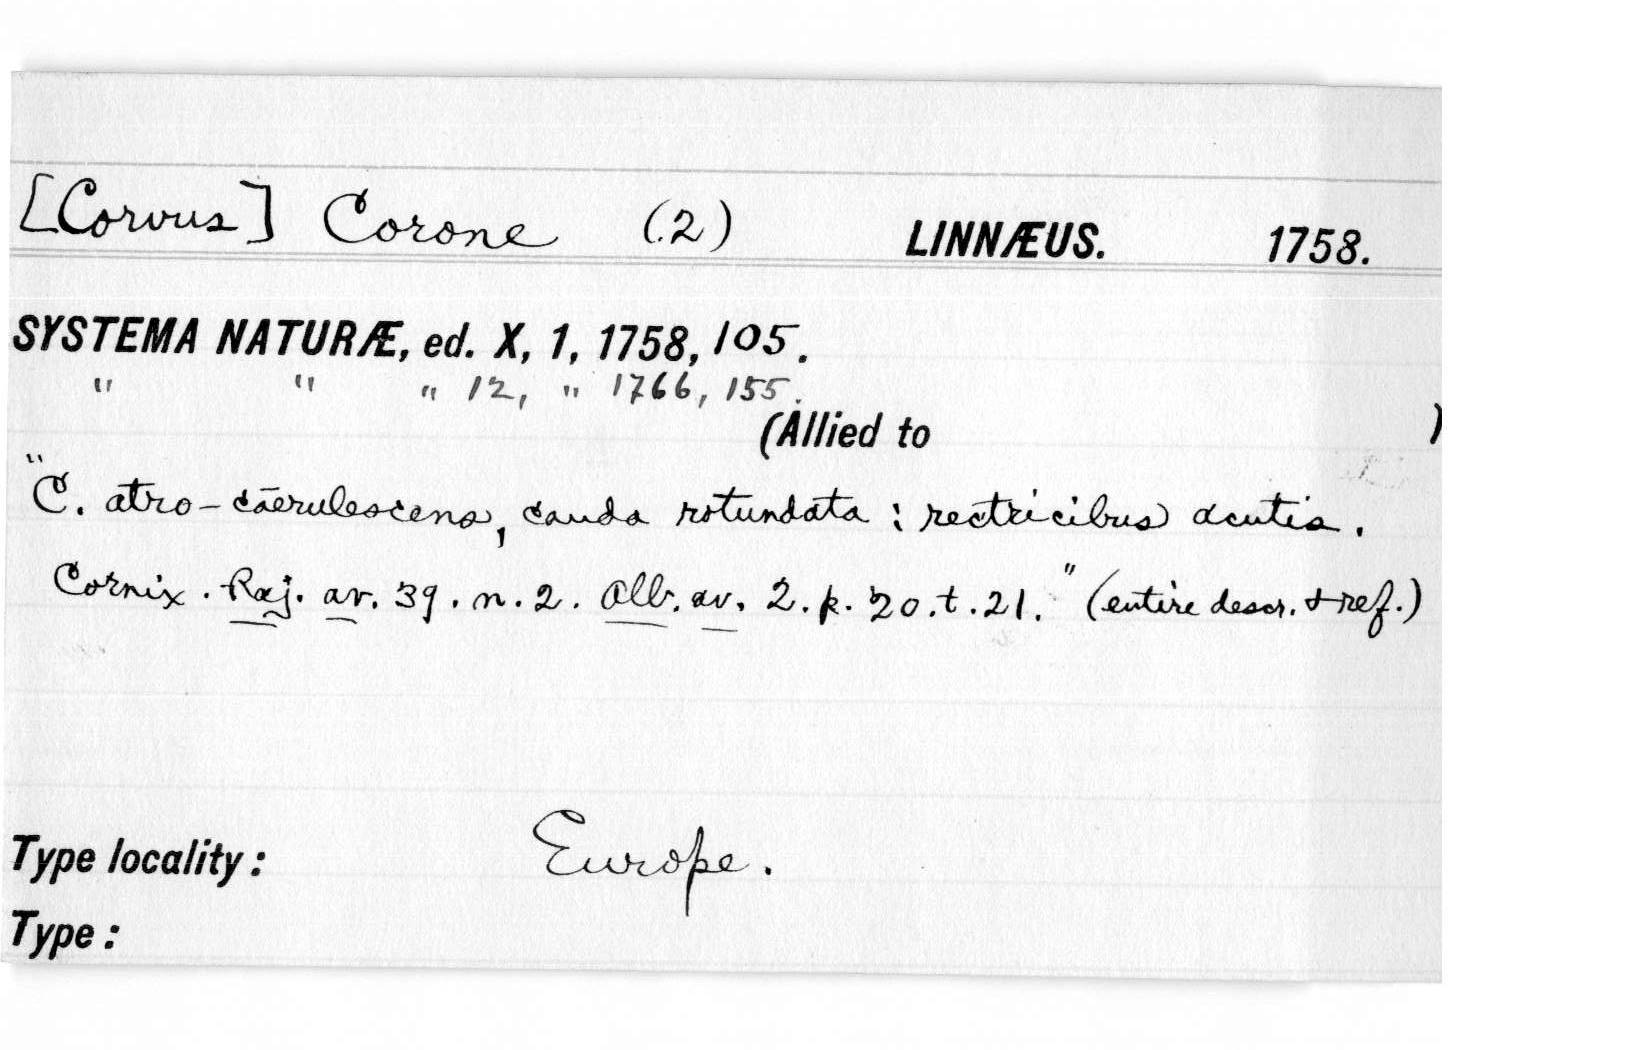 [Corvus] Corone (2) LINNÆUS. 1758.
SYSTEMA NATURÆ, ed. X, 1, 1758, 105.
" " " 12, " 1766, 155.
(Allied to )
"C. atro-cærulescens, cauda rotundata : rectricibus acutis.
Cornix. Raj. av. 39. n. 2. Alb. av. 2. p. 20. t. 21." (entire descr. & ref.)
Type locality: Europe.
Type: